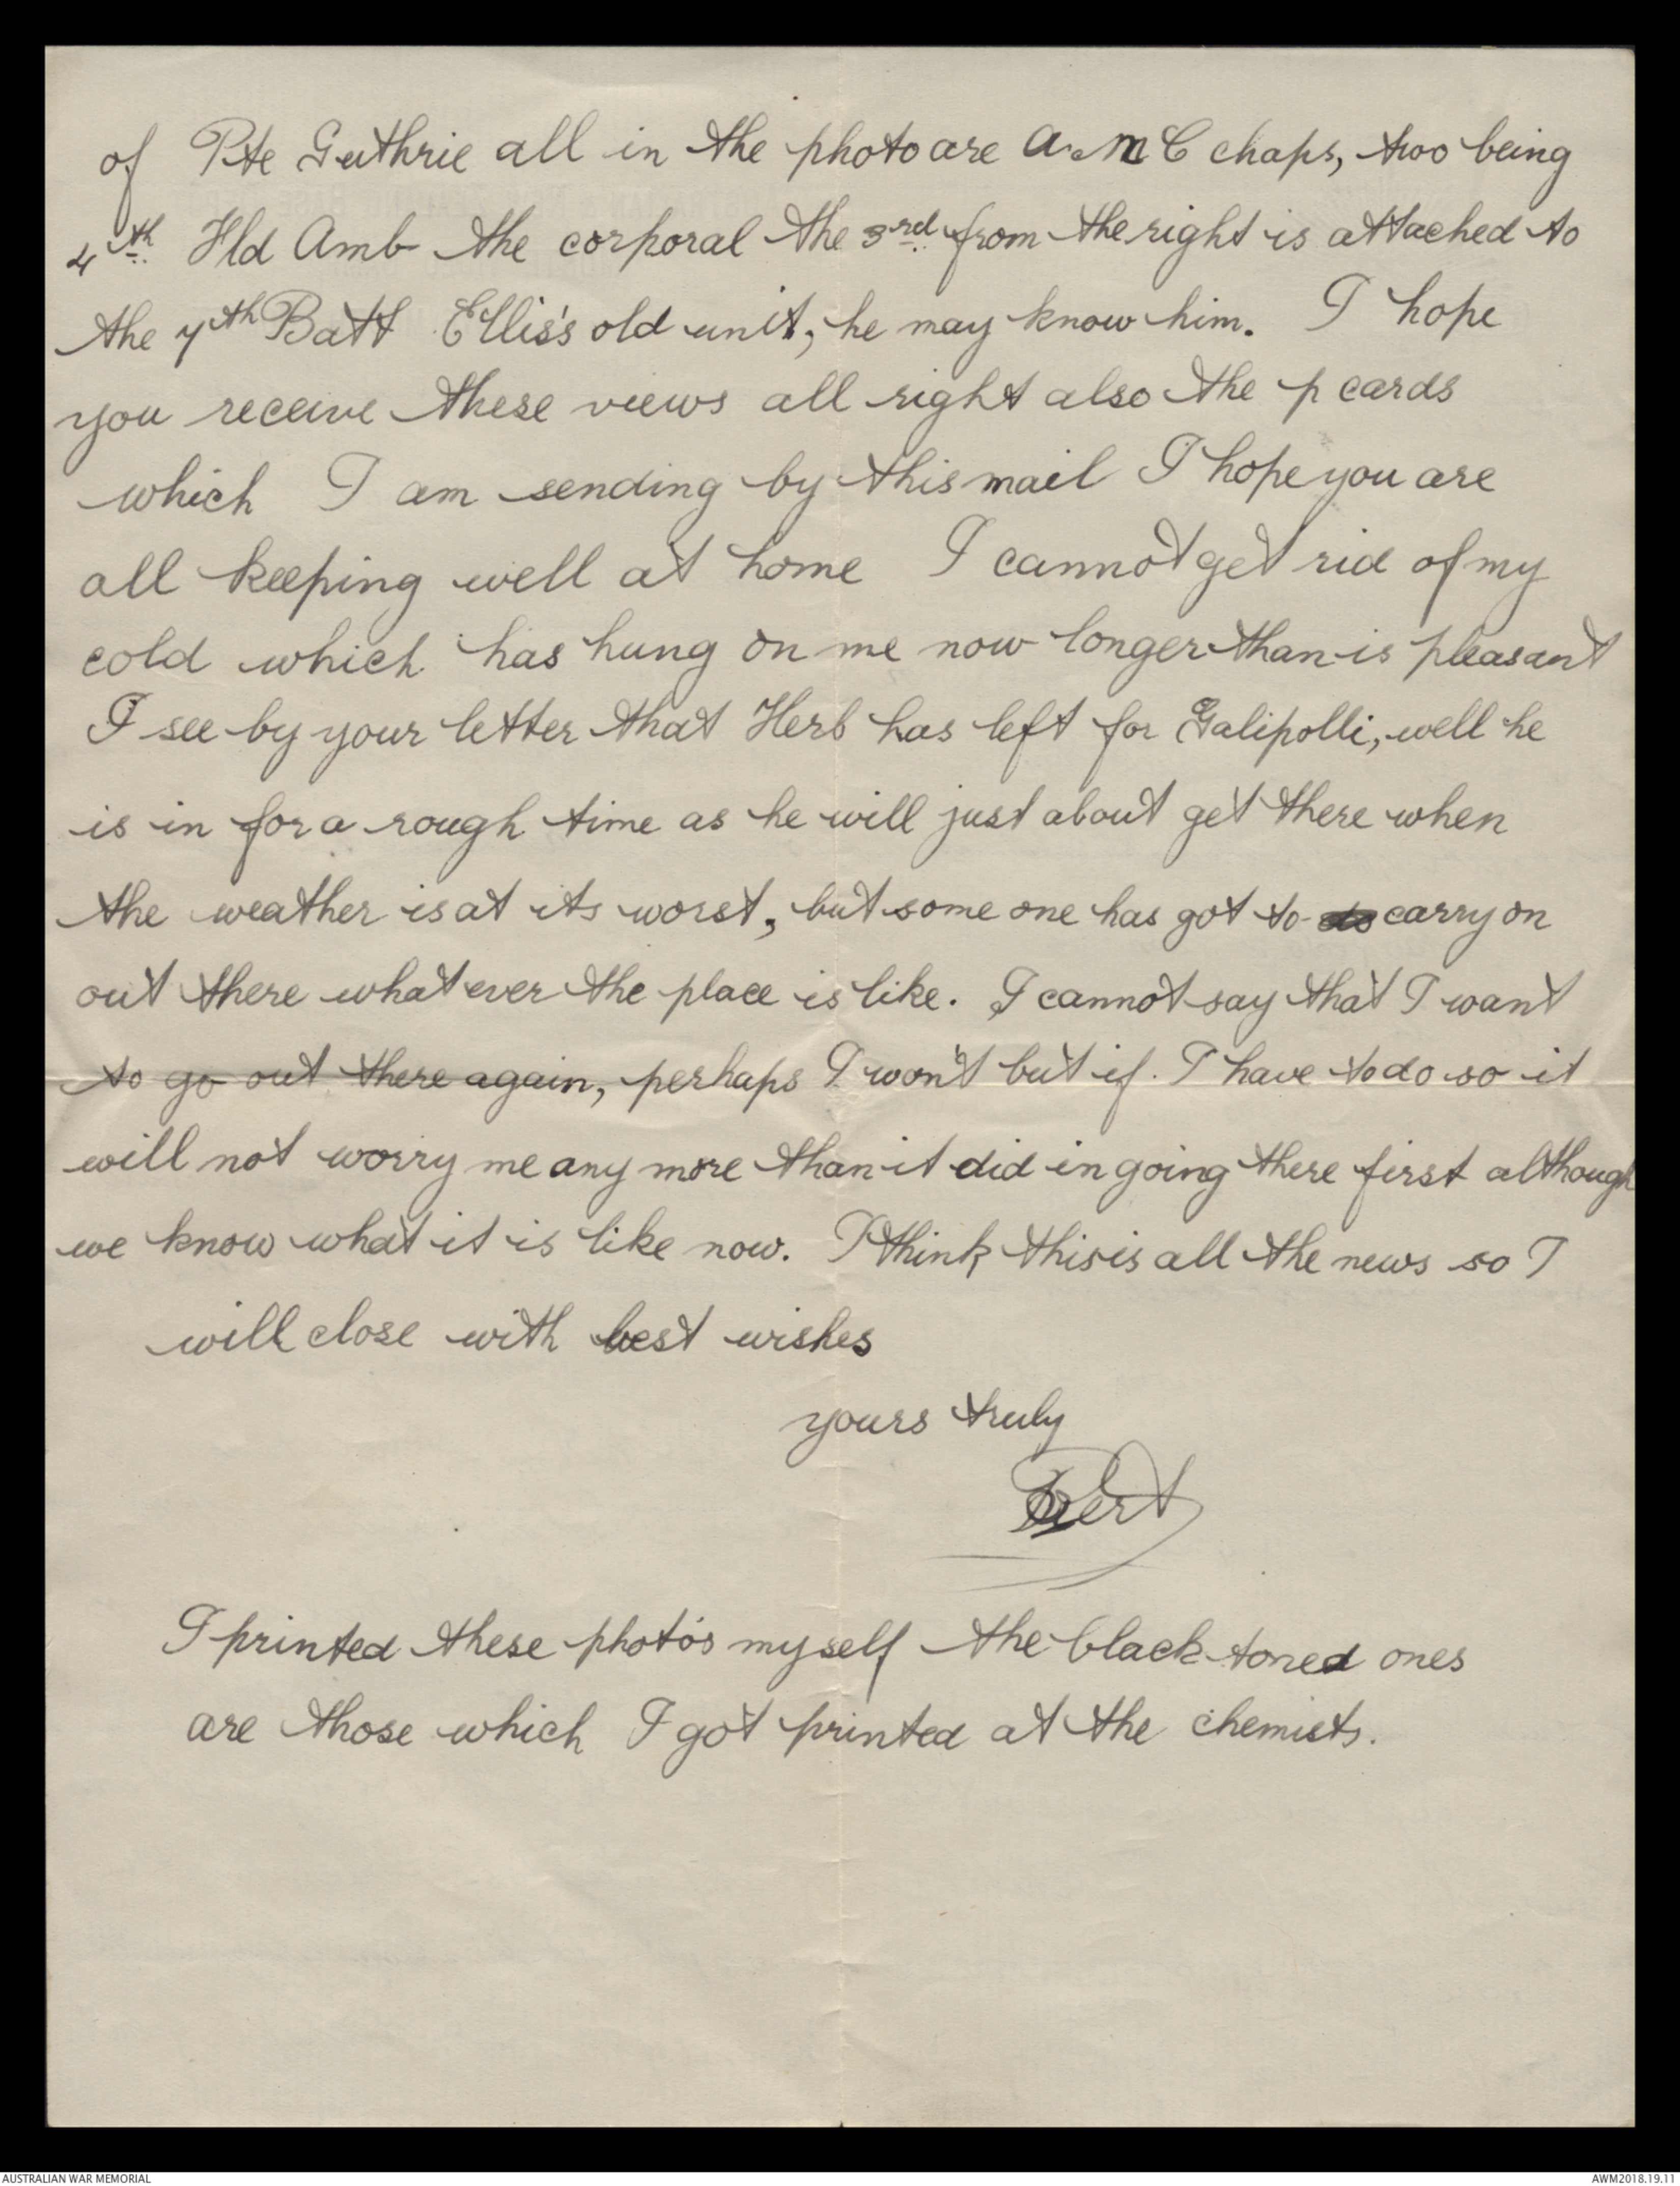 of Pte Guthrie all in the photo are A.M C chaps, two being
4th Fld Amb the corporal the 3rd from the right is attached to
the 7th Batt Ellis's old unit, he may know him. I hope
you receive these views all right also the p cards
which I am sending by this mail I hope you are
all keeping well at home I cannot get rid of my
cold which has hung on me now longer than is pleasant
I see by your letter that Herb has left for Galipolli, well he
is in for a rough time as he will just about get there when
the weather is at its worst, but some one has got to do carry on
out there what ever the place is like. I cannot say that I want
to go out there again, perhaps I won't but if I have to do so it
will not worry me any more than it did in going there first although
we know what it is like now. I think this is all the news so I
will close with best wishes
yours truly
Bert
I printed these photo's myself the black toned ones
are those which I got printed at the chemists.
AUSTRALIAN WAR MEMORIAL
AWM2018.19.11